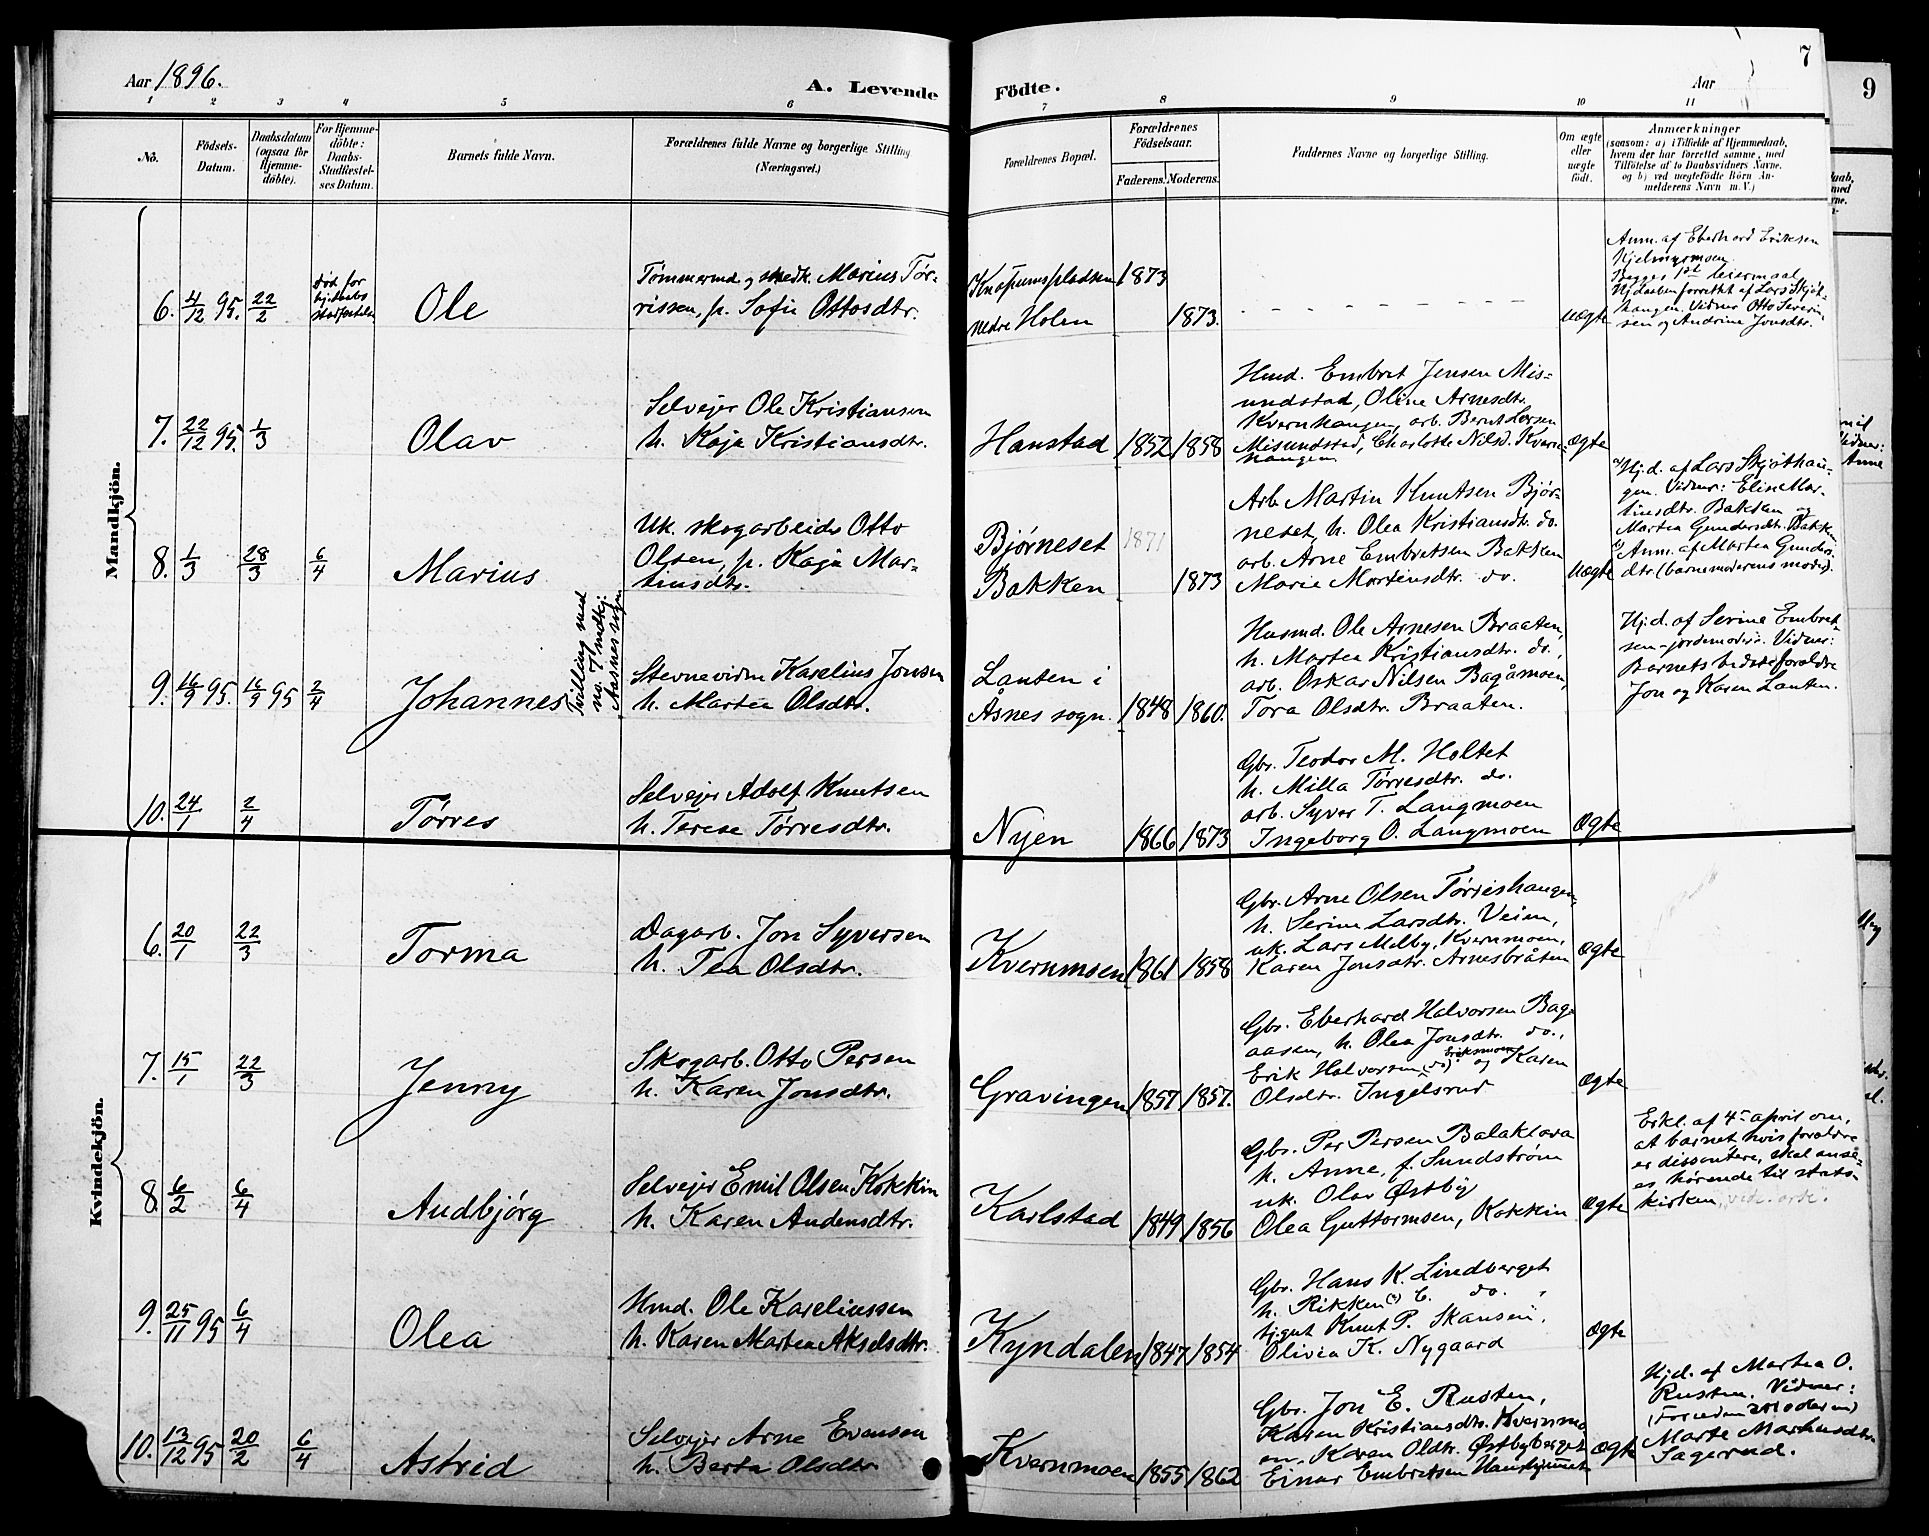 Aar 1896.
A. Levende
Födte.
Aar
7
9
1 2 3 4 5 6 7 8 9 10 11
No.
Födsels-
Datum.
Daabsdatum
(ogsaa for
Hjemme-
döbte).
For Hjemme-
döbte:
Daabs-
Stadfæstel-
ses Datum.
Barnets fulde Navn.
Forældrenes fulde Navne og borgerlige Stilling
(Næringsvei.)
Forældrenes Bopæl.
Forældrenes
Födselsaar.
Faderens. Moderens.
Faddernes Navne og borgerlige Stilling.
Om ægte
eller
uægte
födt.
Anmærkninger
(saasom: a) i Tilfælde af Hjemmedaab,
hvem der har forrettet samme, med
Tilföielse af to Daabsvidners Navne.
og b) ved uægtefödte Börn An-
melderens Navn m. V.)
Mandkjön.
6. 4/12 95. 22/2
Död for
stadfestelse
Ole
Tømmermd. og snedk. Marius Tør-
rissen, p. Sofie Ottosdtr.
Knapumspladsen
nedre Holen
1873
1873.
Uægte
Anm. af Eberhard Eriksen
Kjelmyrmoen
Begges 1ste leiermaal
Hj.daaben forrettet af Lars Skjøt-
haugen. Vidner Otto Severin-
sen og Andrine Jonsdtr.
7. 22/12 95. 1/3
Olav
Selveier Ole Kristiansen
h. Kaja Kristiansdtr.
Hanstad
1852 1858
Hmd. Embret Jensen Mis-
undstad, Oline Arnesdtr.
Kvernhaugen, arb. Bernt Larsen
Misundstad, Charlotte Nilsd. Kvern-
haugen
Ægte
8. 1/3 28/3 6/4
Marius
Uk. skogarbeider Otto
Olsen, p. Kaja Mar-
tinsdtr.
Bjørneset
Bakken
1871
1873
Arb. Martin Knutsen Bjør-
neset, h. Olea Kristiansdtr. do.
arb. Arne Embretsen Bakken
Marie Martinsdtr. do.
Uægte
a) Hj.d. af Lars Skjøthau-
gen. Vidner: Eline Mar-
tinsdtr. Bakken og
Martea Gundersdtr. Bakken
b) Anm. af Martea Gunders-
dtr. (barnemoderens moder).
9. 16/9 95. 16/9 95 2/4
Johannes
Tvilling med
no. 7 mdkj.
Aasnes sogn
Stevnevidne Karelius Jonsen
h. Martea Olsdtr.
Lauten i
Åsnes sogn.
1848 1860.
Husmd. Ole Arnesen Braaten,
h. Martea Kristiansdtr. do.,
arb. Oskar Nilsen Bagåmoen,
Tora Olsdtr. Braaten.
Hj.d. af Serine Embret-
sen - jordmoder. Vidner:
Barnets bedsteforældre
Jon og Karen Lauten.
10. 24/1 2/4
Tørres
Selveier Adolf Knutsen
h. Terese Tørresdtr.
Nyen
1866 1873
Gbr. Teodor M. Holtet
h. Milla Tørresdtr. do.
arb. Syver T. Langmoen
Ingeborg O. Langmoen
Ægte
Kvindekjön.
6. 20/1 22/3
Torma
Dagarb. Jon Syversen
h. Tea Olsdtr.
Kvernmoen
1861 1858
Gbr. Arne Olsen Tørrishaugen,
h. Serine Larsdtr. Veien,
uk. Lars Melby, Kvernmoen,
Karen Jonsdtr. Arnesbråten
Ægte
7. 15/1 22/3
Jenny
Skogarb. Otto Persen
h. Karen Jonsdtr.
Gravingen
1857 1857.
Gbr. Eberhard Halvorsen Bag-
aasen, h. Olea Jonsdtr. do.,
Erik Halvorsen Eriksmoen og Karen
Olsdtr. Ingelsrud
Ægte
8. 6/2 6/4
Audbjörg
Selveier Emil Olsen Kokkin
h. Karen Andersdtr.
Karlstad
1849 1856
Gbr. Per Persen Balaklava
h. Anne, f. Sundstrøm
uk. Olav Østby
Olea Guttormsen, Kokkin
Ægte
Erkl. af 4de april om,
at barnet, hvis forældre
er dissentere, skal anse-
es hørende til stats-
kirken, vide ark.
9. 25/11 95 6/4
Olea
Hmd. Ole Kareliussen
h. Karen Martea Akselsdtr.
Kyndalen
1847 1854
Gbr. Hans K. Lindberget
h. Rikken E. do.,
tjgut Knut P. Skansen,
Olivia K. Nygaard
Ægte
10. 13/12 95 20/2 6/4
Astrid
Selveier Arne Evensen
h. Berta Olsdtr.
Kvernmoen
1855 1862
Gbr. Jon E. Rusten,
Karen Kristiansdtr. Kvernmo-
en, Karen Oldtr. Østbyberget
Einar Embretsen
Ægte
Hj.d. af Martea O.
Rusten. Vidner:
(Foruden moderen)
Marte Markusdtr.
Sagerud.